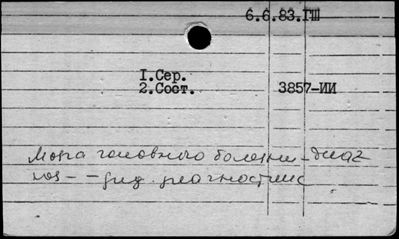 6.6.83.ГШ
1.Сер.
2.Сост. 3857-ИИ
головного болезни - диаг
ноз - - диагностике